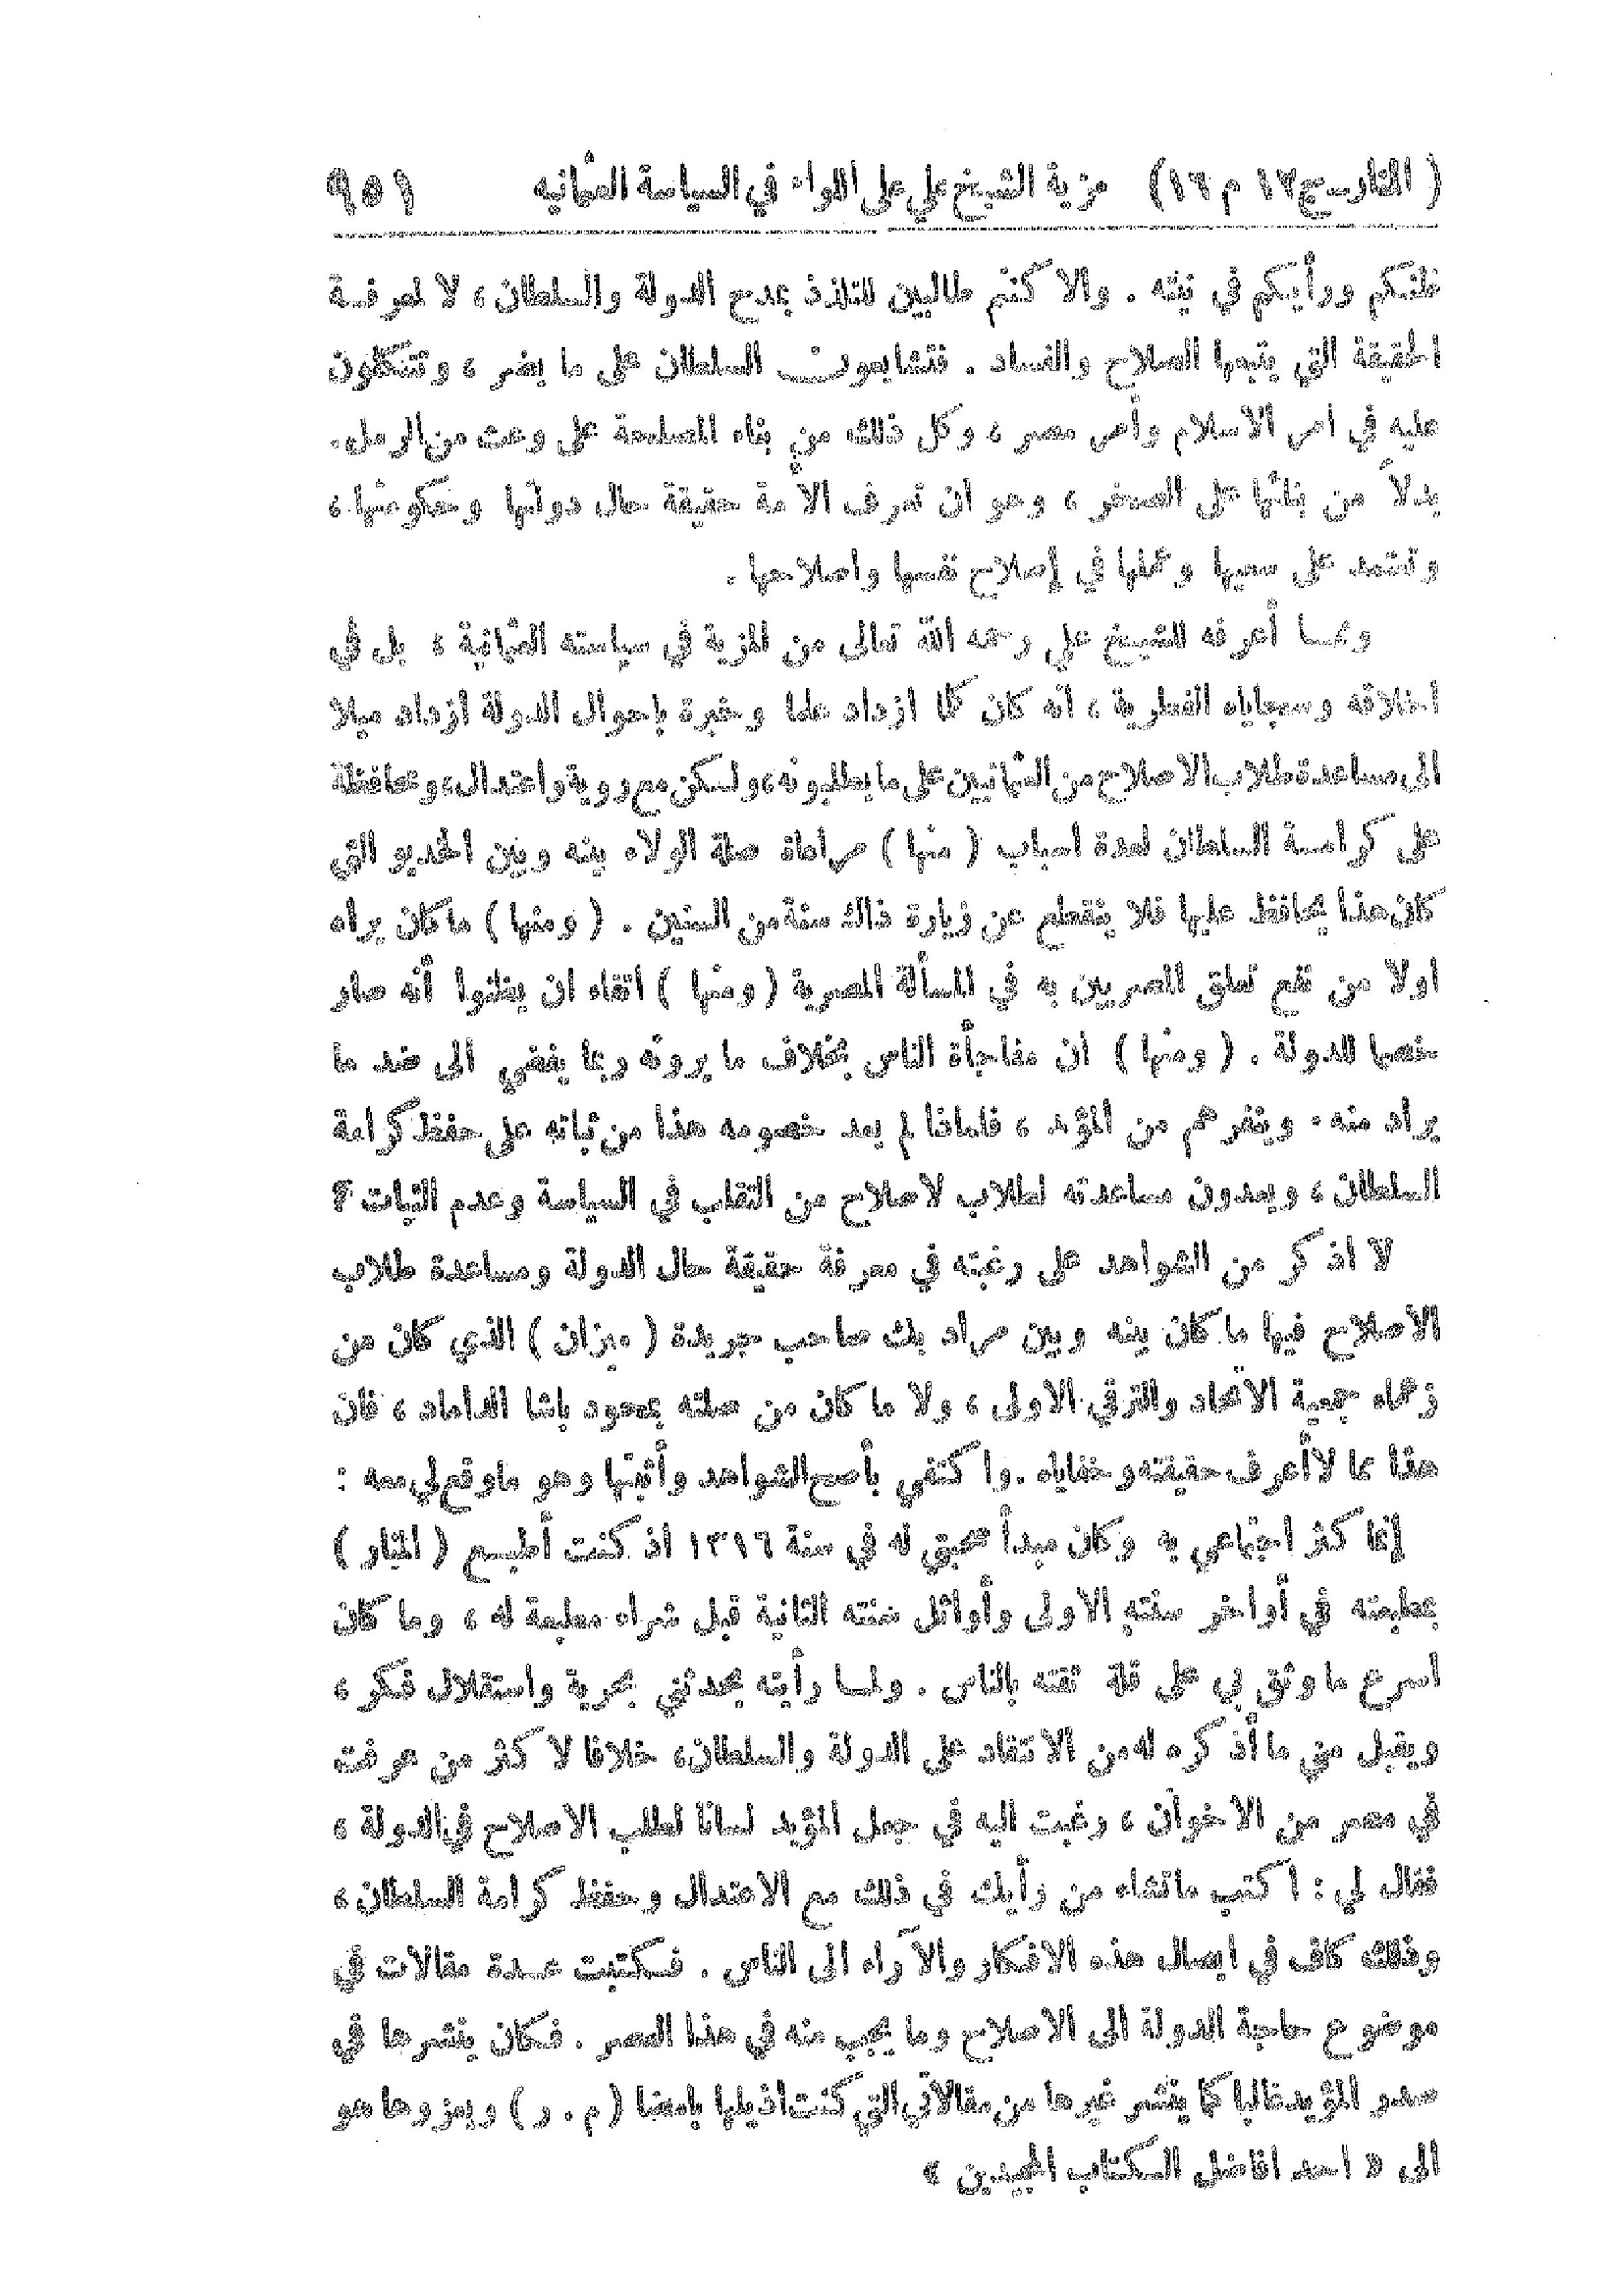 ( المنار ـ ج ١٢ م ١٦ ) مزية الشيخ علي على اللواء في السياسة العثمانيه ٩٥١
ظنكم ورأيكم في نيته . والا كنتم طالبين للتلذذ بمدح الدولة والسلطان ، لا لمعرفة
الحقيقة التي يتبعها الصلاح والفساد . فتشايعون السلطان على ما يضر ، وتتكلون
عليه في امر الاسلام وأمر مصر ، وكل ذلك من بناء المصلحة على وعث من الرمل .
بدلاً من بنائها على الصخر ، وهو ان تعرف الأمة حقيقة حال دولتها وحكومتها ،
وتعتمد على سعيها وعملها في إصلاح نفسها واصلاحها .
ومما أعرفه للشيخ علي رحمه الله تعالى من المزية في سياسته العثمانية ، بل في
اخلاقه وسجاياه الفطرية ، انه كان كلما ازداد علما وخبرة بأحوال الدولة ازداد ميلا
الى مساعدة طلاب الاصلاح من العثمانيين على ما يطلبونه ، ولكن مع روية واعتدال ، ومحافظة
على كرامة السلطان لعدة اسباب ( منها ) مراعاة صلة الولاء بينه وبين الخديو التي
كان هذا يحافظ عليها فلا ينقطع عن زيارة ذاك سنة من السنين . ( ومنها ) ما كان يراه
اولا من نفع تعلق المصريين به في المسألة المصرية ( ومنها ) اتقاء ان يظنوا أنه صار
خصما للدولة . ( ومنها ) ان مفاجأة الناس بخلاف ما يرونه ربما يفضي الى ضد ما
يراد منه . وينفرهم من المؤيد ، فلماذا لم يعد خصومه هذا من ثباته على حفظ كرامة
السلطان ، ويعدون مساعدته لطلاب لاصلاح من التقلب في السياسة وعدم الثبات ؟
لا اذكر من الشواهد على رغبته في معرفة حقيقة حال الدولة ومساعدة طلاب
الاصلاح فيها ما كان بينه وبين مراد بك صاحب جريدة ( ميزان ) الذي كان من
زعماء جمعية الاتحاد والترقي الاولى ، ولا ما كان من صلته بمحمود باشا الداماد ، فان
هذا مما لا أعرف حقيقته وخفاياه . واكتفي بأصح الشواهد وأثبتها وهو ما وقع لي معه :
إنما كثر اجتماعي به وكان مبدأ صحبتي له في سنة ١٣١٦ اذ كنت أطبع ( المنار )
بمطبعته في أواخر سنته الاولى وأوائل سنته الثانية قبل شراء مطبعة له ، وما كان
اسرع ما وثق بي على قلة ثقته بالناس . ولما رأيته يحدثني بحرية واستقلال فكر ،
ويقبل مني ما أذكره له من الانتقاد على الدولة والسلطان ، خلافا لاكثر من عرفت
في مصر من الاخوان ، رغبت اليه في جعل المؤيد لسانا لطلب الاصلاح في الدولة ،
فقال لي : اكتب ما تشاء من رأيك في ذلك مع الاعتدال وحفظ كرامة السلطان ،
وذلك كاف في ايصال هذه الافكار والآراء الى الناس . فكتبت عدة مقالات في
موضوع حاجة الدولة الى الاصلاح وما يجب منه في هذا العصر . فكان ينشرها في
صدر المؤيد غالبا كما ينشر غيرها من مقالاتي التي كنت اذيلها بامضا ( م . ر ) ويعزوها هو
الى « احد افاضل الكتاب المجيدين »